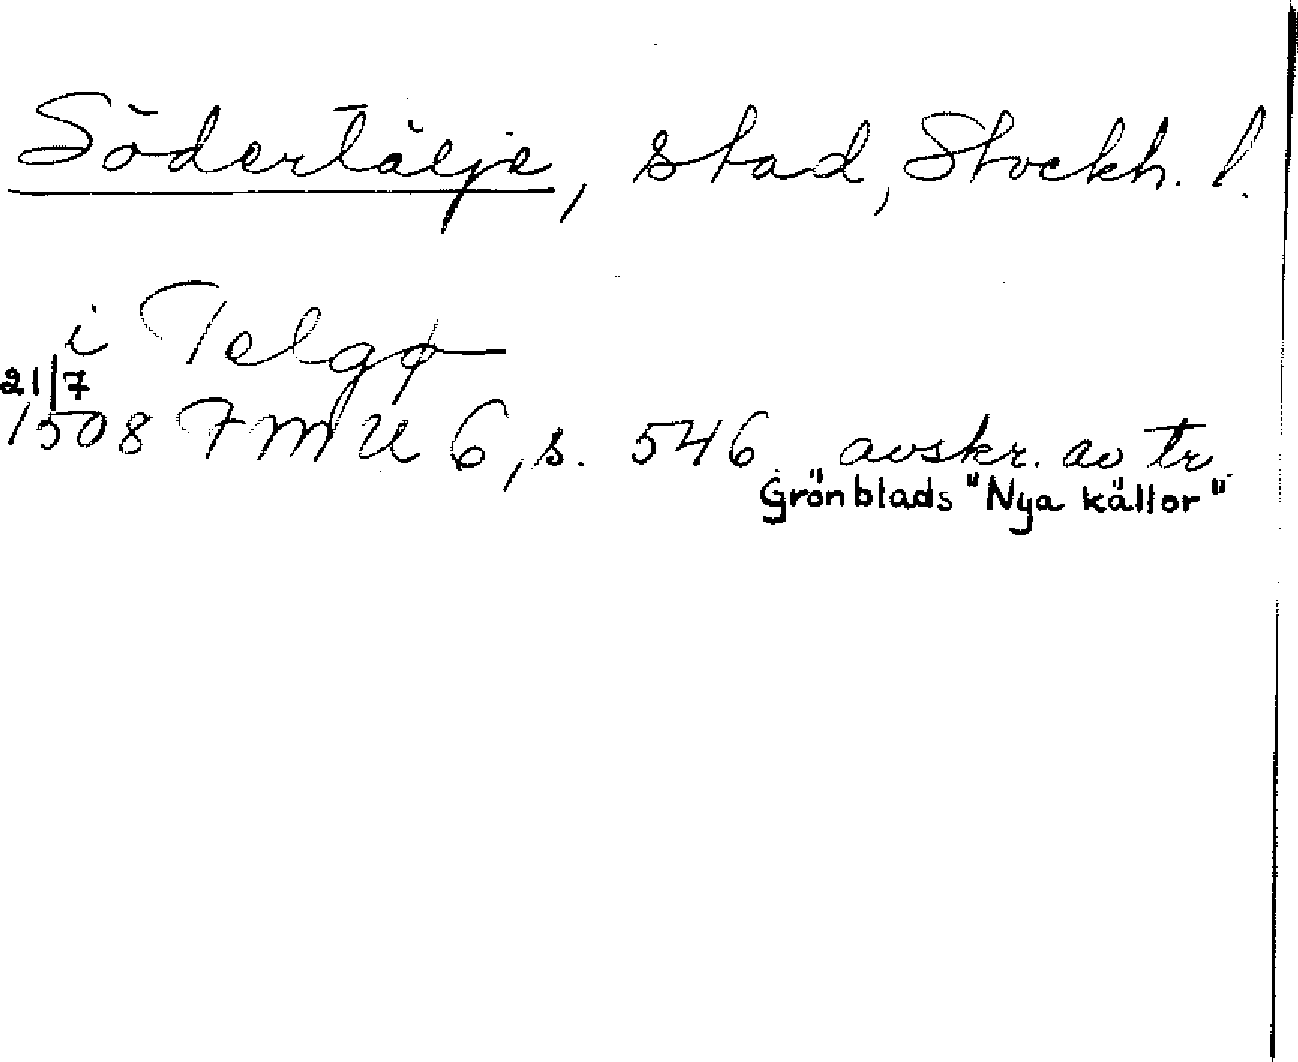 Södertälje, stad, Stockh. l.
i Telgø
21/7
1508 FMU 6, s. 546 avskr. av tr
Grönblads "Nya källor"